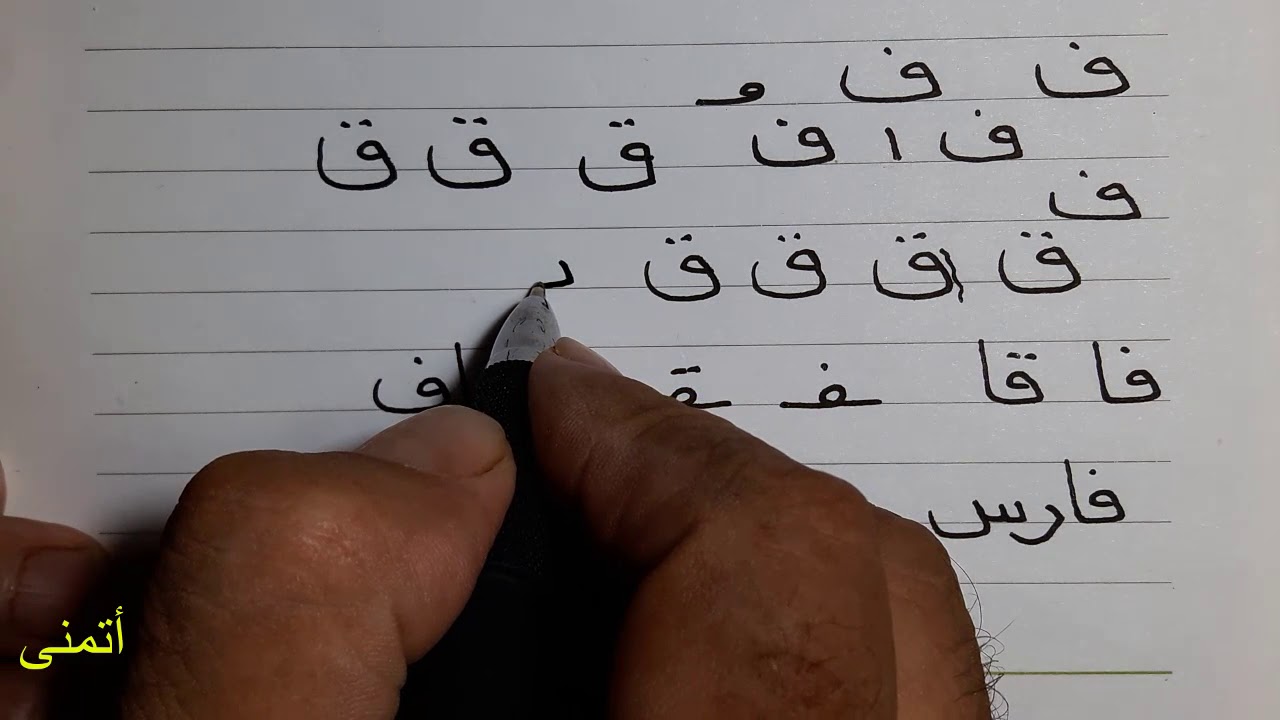 ف ف
ف ا ف ق ق ق
ف
ق ق ق ق
فا قا ـفـ ـقـ اف
فارس
أتمنى